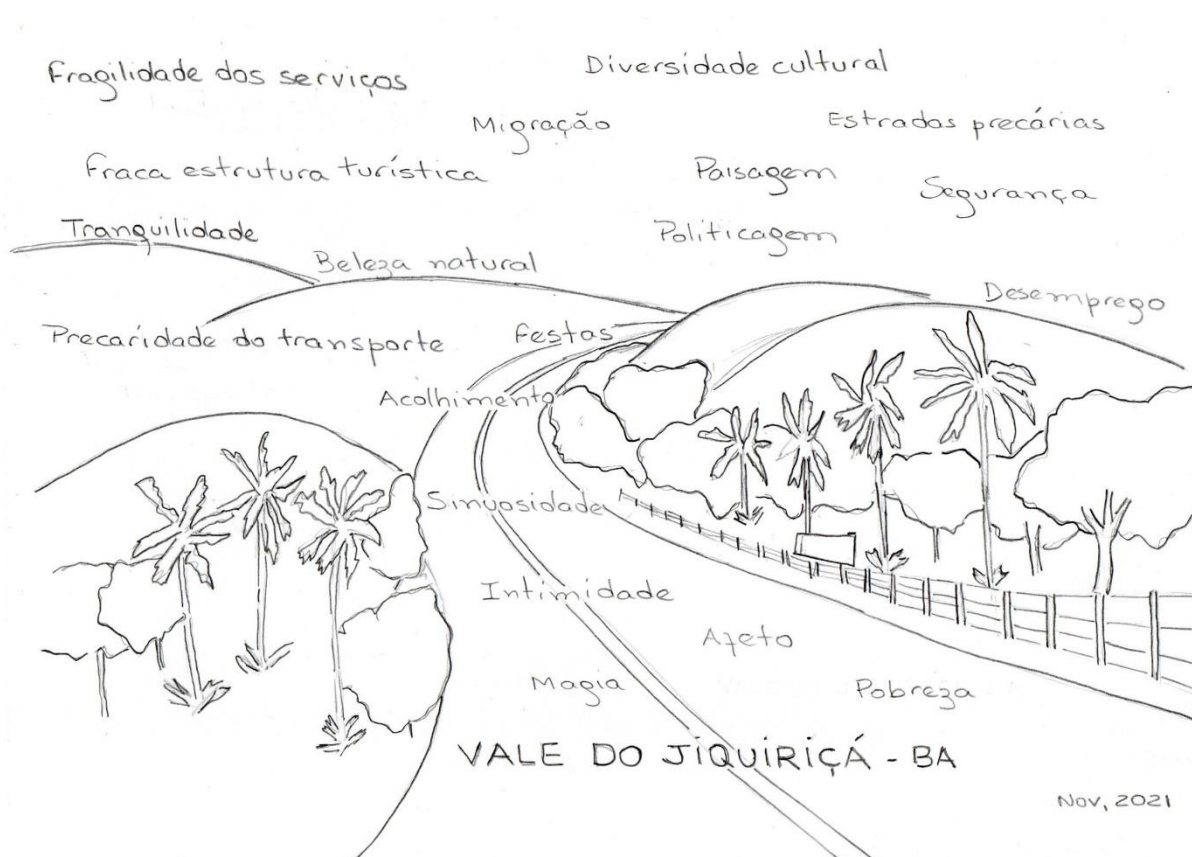 Fragilidade dos serviços
Diversidade cultural
Migração
Estradas precárias
Fraca estrutura turística
Paisagem
Segurança
Tranquilidade
Politicagem
Beleza natural
Desemprego
Precaridade do transporte
Festas
Acolhimento
Sinuosidade
Intimidade
Afeto
Magia
Pobreza
VALE DO JIQUIRIÇÁ - BA
Nov, 2021